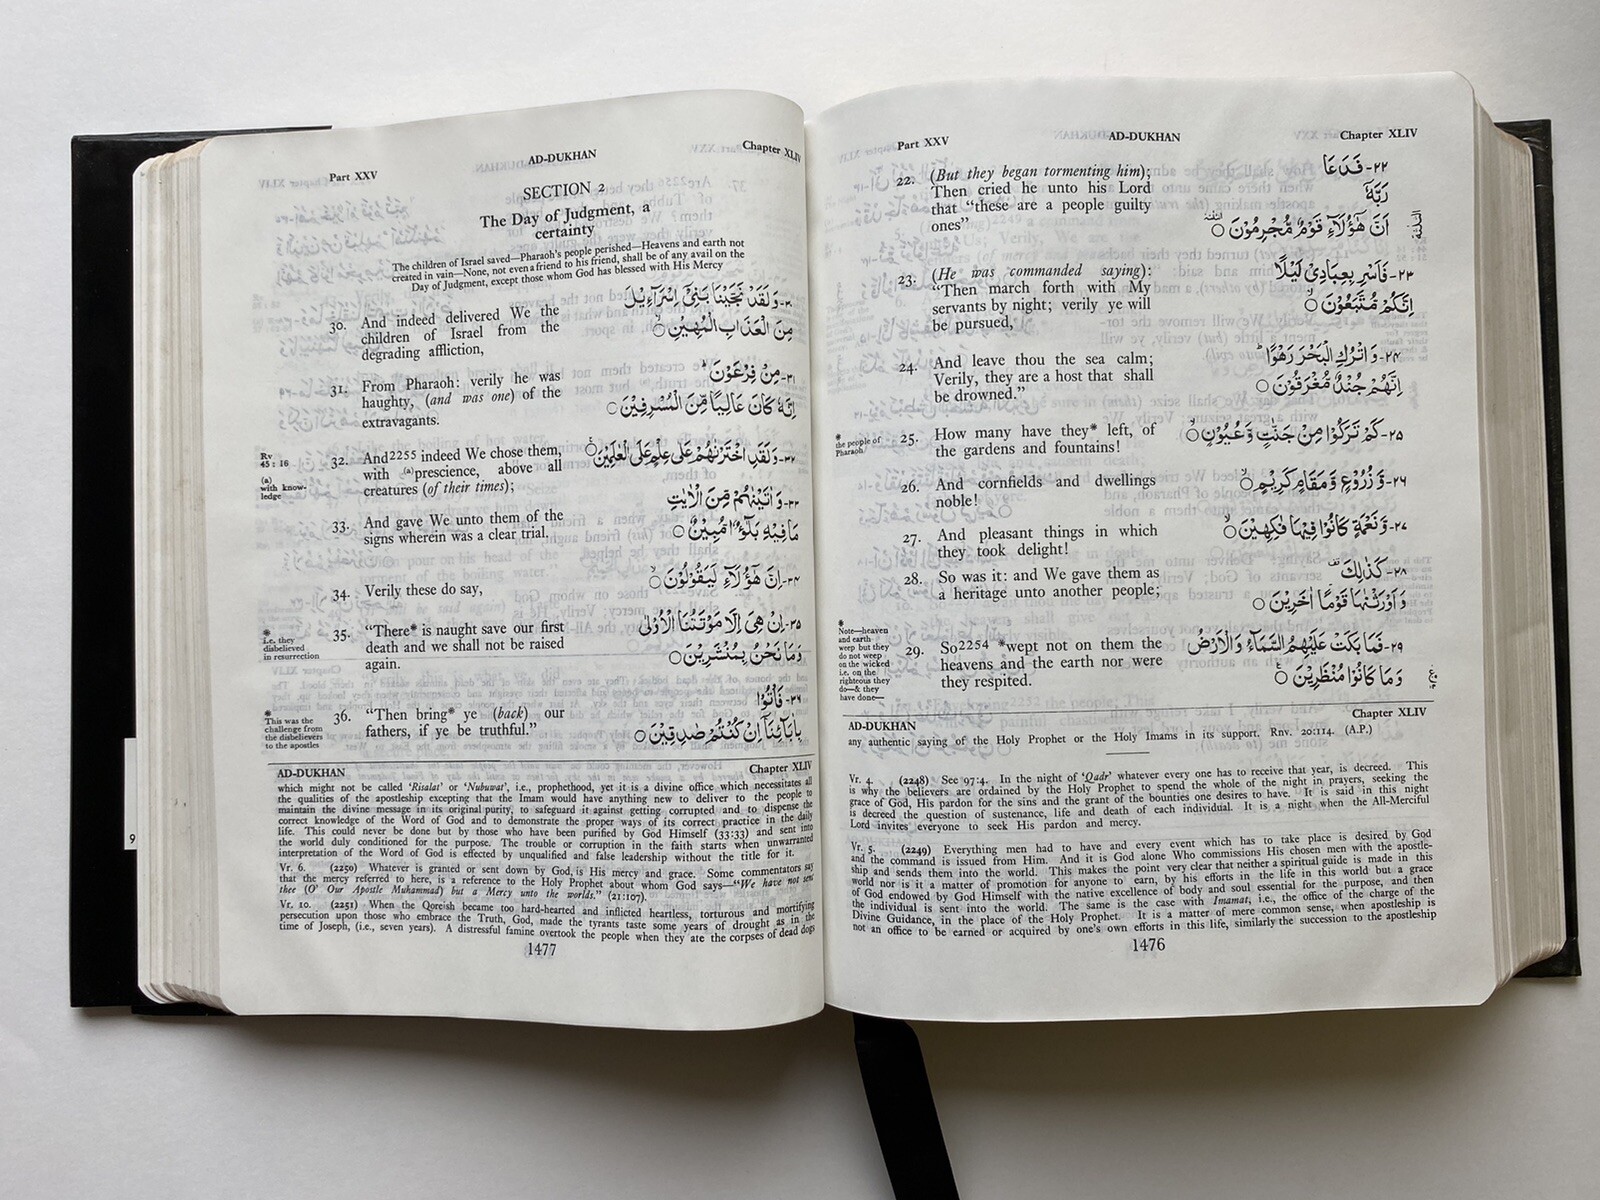 Part XXV
AD-DUKHAN
Chapter XLIV
22. (But they began tormenting him);
Then cried he unto his Lord
that "these are a people guilty
ones"
٢٢- فَدَعَا
رَبَّهٗ
اَنَّ هٰٓؤُلَآءِ قَوْمٌ مُّجْرِمُوْنَ ○
23. (He was commanded saying):
"Then march forth with My
servants by night; verily ye will
be pursued,
٢٣- فَاَسْرِ بِعِبَادِيْ لَيْلًا
اِنَّكُمْ مُّتَّبَعُوْنَ ○
24. And leave thou the sea calm;
Verily, they are a host that shall
be drowned."
٢٤- وَاتْرُكِ الْبَحْرَ رَهْوًا
اِنَّهُمْ جُنْدٌ مُّغْرَقُوْنَ ○
*
the people of
Pharaoh
25. How many have they* left, of
the gardens and fountains!
٢٥- كَمْ تَرَكُوْا مِنْ جَنّٰتٍ وَّعُيُوْنٍ ○
26. And cornfields and dwellings
noble!
٢٦- وَّزُرُوْعٍ وَّمَقَامٍ كَرِيْمٍ ○
27. And pleasant things in which
they took delight!
٢٧- وَّنَعْمَةٍ كَانُوْا فِيْهَا فٰكِهِيْنَ ○
28. So was it: and We gave them as
a heritage unto another people;
٢٨- كَذٰلِكَ
وَاَوْرَثْنٰهَا قَوْمًا اٰخَرِيْنَ ○
*
Note—heaven
and earth
weep but they
do not weep
on the wicked
i.e. on the
righteous they
do—& they
have done—
29. So2254 *wept not on them the
heavens and the earth nor were
they respited.
٢٩- فَمَا بَكَتْ عَلَيْهِمُ السَّمَآءُ وَالْاَرْضُ
وَمَا كَانُوْا مُنْظَرِيْنَ ○
AD-DUKHAN
Chapter XLIV
any authentic saying of the Holy Prophet or the Holy Imams in its support. Rnv. 20:114. (A.P.)
Vr. 4. (2248) See 97:4. In the night of 'Qadr' whatever every one has to receive that year, is decreed. This
is why the believers are ordained by the Holy Prophet to spend the whole of the night in prayers, seeking the
grace of God, His pardon for the sins and the grant of the bounties one desires to have. It is said in this night
is decreed the question of sustenance, life and death of each individual. It is a night when the All-Merciful
Lord invites everyone to seek His pardon and mercy.
Vr. 5. (2249) Everything men had to have and every event which has to take place is desired by God
and the command is issued from Him. And it is God alone Who commissions His chosen men with the apostle-
ship and sends them into the world. This makes the point very clear that neither a spiritual guide is made in this
world nor is it a matter of promotion for anyone to earn, by his efforts in the life in this world but a grace
of God endowed by God Himself with the native excellence of body and soul essential for the purpose, and then
the individual is sent into the world. The same is the case with Imamat, i.e., the office of the charge of the
Divine Guidance, in the place of the Holy Prophet. It is a matter of mere common sense, when apostleship is
not an office to be earned or acquired by one's own efforts in this life, similarly the succession to the apostleship
1476
Part XXV
AD-DUKHAN
Chapter XLIV
SECTION 2
The Day of Judgment, a
certainty
The children of Israel saved—Pharaoh's people perished—Heavens and earth not
created in vain—None, not even a friend to his friend, shall be of any avail on the
Day of Judgment, except those whom God has blessed with His Mercy
30. And indeed delivered We the
children of Israel from the
degrading affliction,
٣٠- وَلَقَدْ نَجَّيْنَا بَنِيْٓ اِسْرَآءِيْلَ
مِنَ الْعَذَابِ الْمُهِيْنِ ○
31. From Pharaoh: verily he was
haughty, (and was one) of the
extravagants.
٣١- مِنْ فِرْعَوْنَ
اِنَّهٗ كَانَ عَالِيًا مِّنَ الْمُسْرِفِيْنَ ○
Rv
45 : 16
(a)
with know-
ledge
32. And2255 indeed We chose them,
with (a)prescience, above all
creatures (of their times);
٣٢- وَلَقَدِ اخْتَرْنٰهُمْ عَلٰى عِلْمٍ عَلَى الْعٰلَمِيْنَ ○
33. And gave We unto them of the
signs wherein was a clear trial.
٣٣- وَاٰتَيْنٰهُمْ مِّنَ الْاٰيٰتِ
مَا فِيْهِ بَلٰٓؤٌا مُّبِيْنٌ ○
34. Verily these do say,
٣٤- اِنَّ هٰٓؤُلَآءِ لَيَقُوْلُوْنَ ○
*
i.e. they
disbelieved
in resurrection
35. "There* is naught save our first
death and we shall not be raised
again.
٣٥- اِنْ هِيَ اِلَّا مَوْتَتُنَا الْاُوْلٰى
وَمَا نَحْنُ بِمُنْشَرِيْنَ ○
*
This was the
challenge from
the disbelievers
to the apostles
36. "Then bring* ye (back) our
fathers, if ye be truthful."
٣٦- فَاْتُوْا
بِاٰبَآئِنَآ اِنْ كُنْتُمْ صٰدِقِيْنَ ○
AD-DUKHAN
Chapter XLIV
which might not be called 'Risalat' or 'Nubuwat', i.e., prophethood, yet it is a divine office which necessitates all
the qualities of the apostleship excepting that the Imam would have anything new to deliver to the people to
maintain the divine message in its original purity, to safeguard it against getting corrupted and to dispense the
correct knowledge of the Word of God and to demonstrate the proper ways of its correct practice in the daily
life. This could never be done but by those who have been purified by God Himself (33:33) and sent into
the world duly conditioned for the purpose. The trouble or corruption in the faith starts when unwarranted
interpretation of the Word of God is effected by unqualified and false leadership without the title for it.
Vr. 6. (2250) Whatever is granted or sent down by God, is His mercy and grace. Some commentators say
that the mercy referred to here, is a reference to the Holy Prophet about whom God says—"We have not sent
thee (O' Our Apostle Muhammad) but a Mercy unto the worlds." (21:107).
Vr. 10. (2251) When the Qoreish became too hard-hearted and inflicted heartless, torturous and mortifying
persecution upon those who embrace the Truth, God, made the tyrants taste some years of drought as in the
time of Joseph, (i.e., seven years). A distressful famine overtook the people when they ate the corpses of dead dogs
1477
9